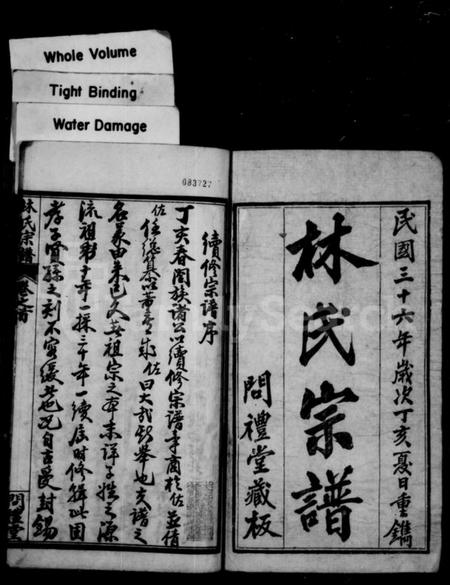 Whole Volume
Tight Binding
Water Damage
083727
民國三十六年歲次丁亥夏日重鐫
林氏宗譜
問禮堂藏板
續修宗譜序
丁亥春閤族諸公以續修宗譜事商於佐並倩
佐任總纂以董其成佐曰大哉斯舉也夫譜之
名義由來已久其祖宗之本末詳子姓之源
流祖制十年一採三十年一續屆時修輯此固
孝子賢孫之刻不容緩者也况自古受封錫
林氏宗譜
卷之首
問禮堂